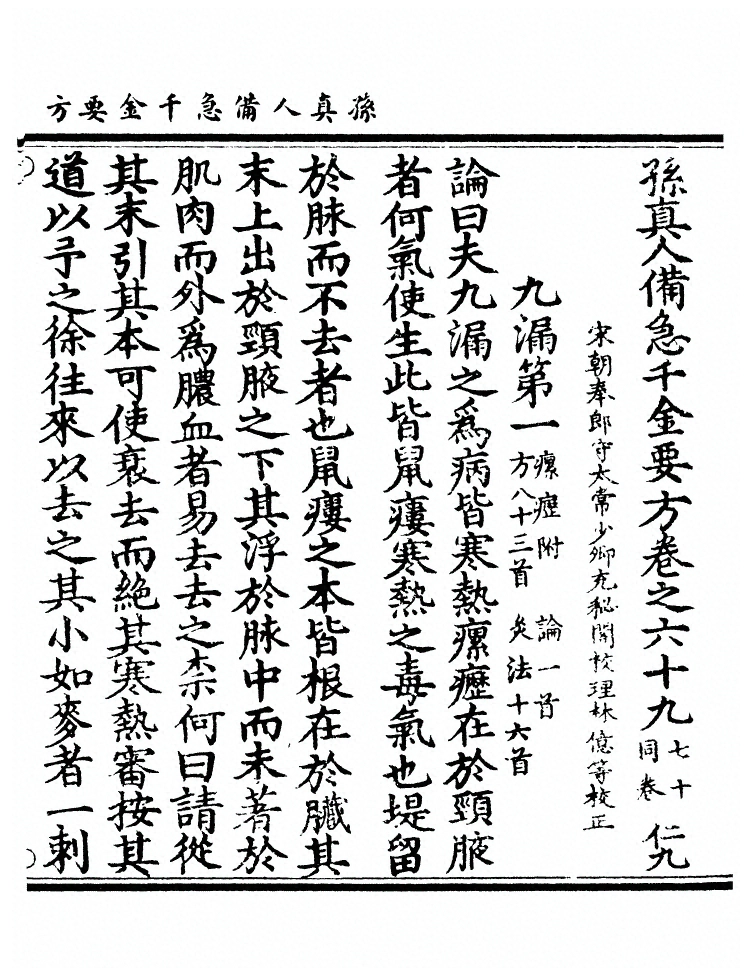 孫真人備急千金要方
孫真人備急千金要方卷之六十九 七十同卷 仁九
宋朝奉郎守太常少卿充秘閣校理林億等校正
九漏第一 瘰癧附 論一首 方八十三首 灸法十六首
論曰夫九漏之為病皆寒熱瘰癧在於頸腋
者何氣使生此皆鼠瘻寒熱之毒氣也堤留
於脉而不去者也鼠瘻之本皆根在於臟其
末上出於頸腋之下其浮於脉中而未著於
肌肉而外為膿血者易去去之柰何曰請從
其末引其本可使衰去而絶其寒熱審按其
道以予之徐往來以去之其小如麥者一刺